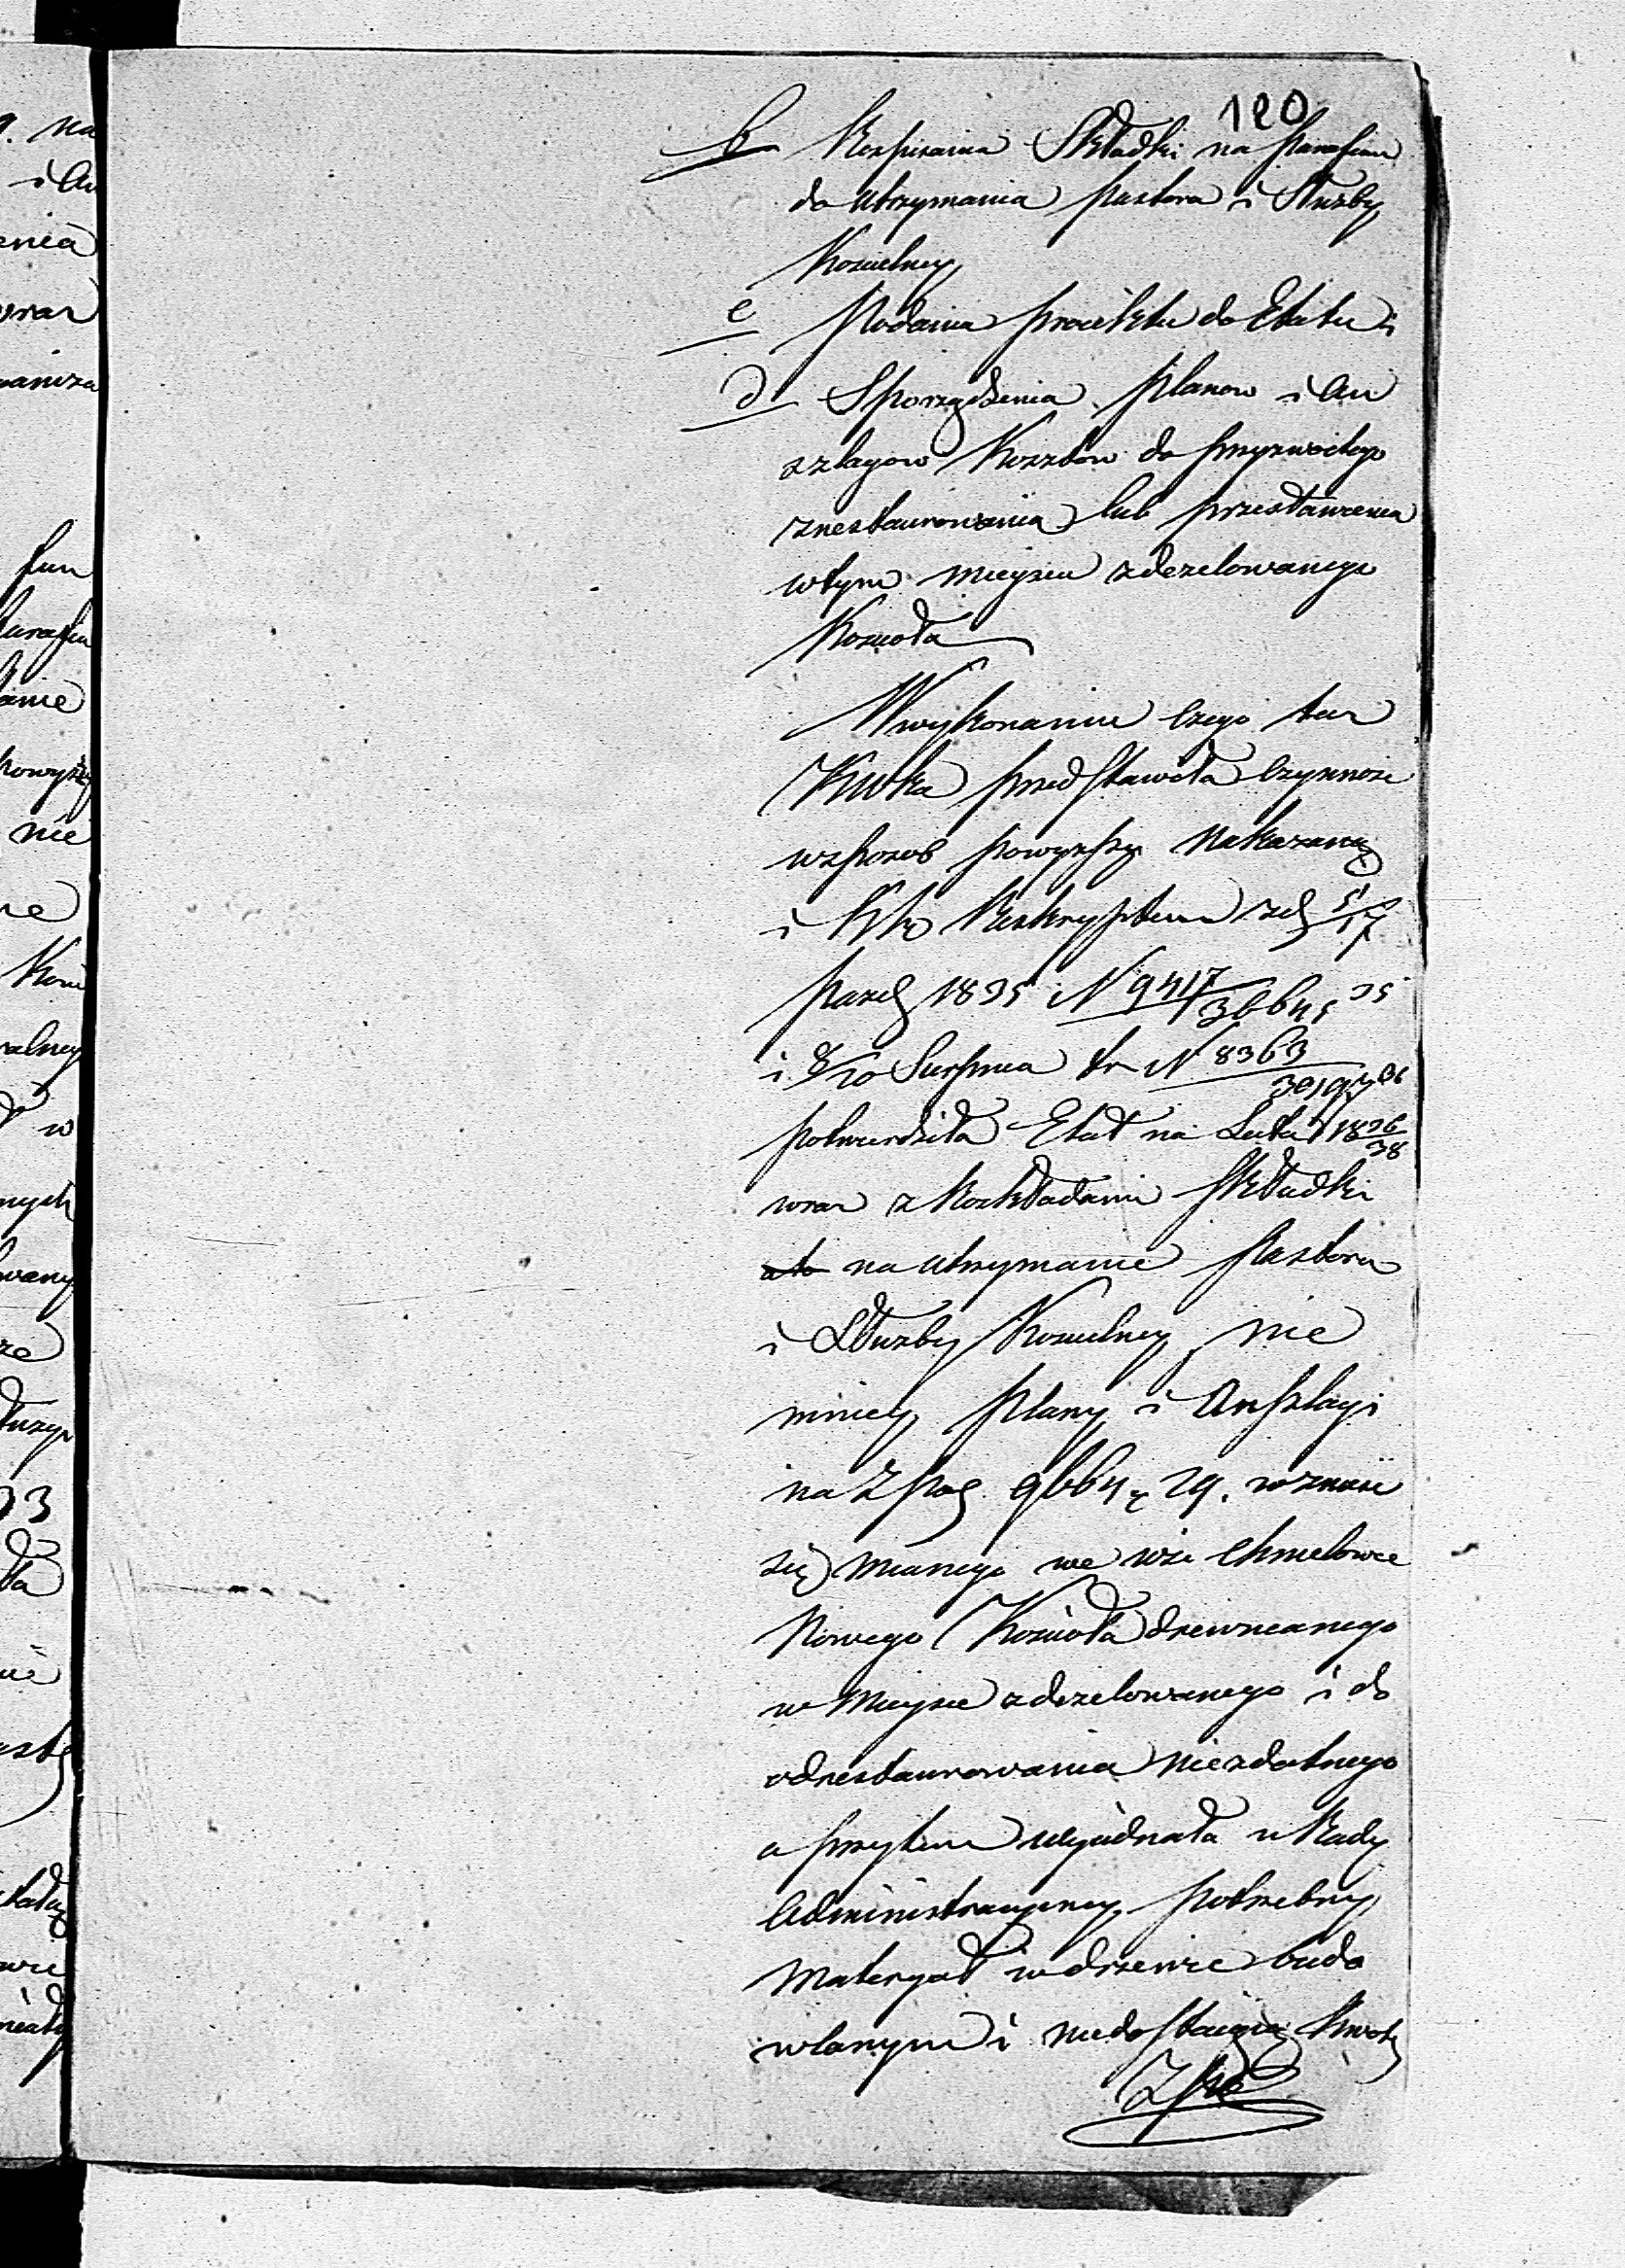 120
b Rozpisania Składki na Parafian
do utrzymania Pastora i Służby
Kościelney
c Podania proiektu do Etatu i
d Sporządzenia Planow i an
szlagow Kosztow do przyzwoitego
zrestaurowania lub przestawienia
w tym mieyscu zdezelowanego
Kościoła
W wykonaniu czego taż
przedstawiła czynność
w sposob powyższy nakazaną
i Reskryptem z d. 5/17
Pazd 1835 N 9417/36645 35
i 8/20 Sierpnia tr N 8363
potwierdziła Etat na Lata 1836/38
wraz z Rozkładami Składki
na utrzymanie Pastora
i Służby Kościelney, nie
mniey Plany i Anszlagi
na Zł pol 9664 g 29. wznieść
się mianego we wsi Chmelowce
Nowego Kościoła drewnianego
w Mieysce zdezelowanego i do
odrestaurowania niezdatnego
a przytem wyiednała u Rady
Administracyiney potrzebny
materyał w drzewie budo
wlanym i niedostaiącą kwotę